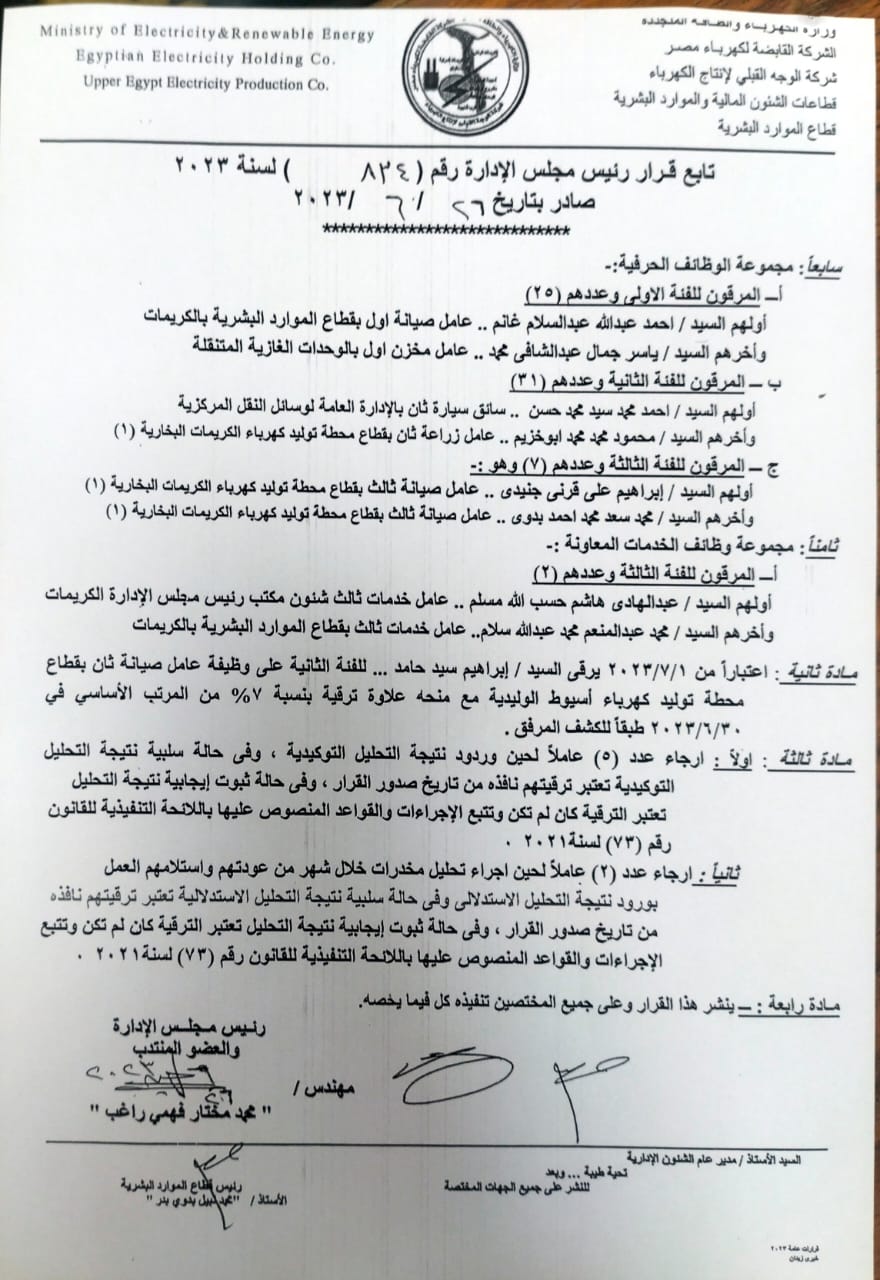 Ministry of Electricity&Renewable Energy
Egyptian Electricity Holding Co.
Upper Egypt Electricity Production Co.
وزارة الكهرباء والطاقة المتجددة
الشركة القابضة لكهرباء مصر
شركة الوجه القبلي لإنتاج الكهرباء
قطاعات الشئون المالية والموارد البشرية
قطاع الموارد البشرية
تابع قرار رئيس مجلس الإدارة رقم ( ٨٢٤ ) لسنة ٢٠٢٣
صادر بتاريخ ٢٦ / ٦ /٢٠٢٣
****************************
سابعاً: مجموعة الوظائف الحرفية:-
أ‌ــ المرقون للفئة الاولى وعددهم (٢٥)
أولهم السيد / احمد عبدالله عبدالسلام غانم .. عامل صيانة اول بقطاع الموارد البشرية بالكريمات
وأخرهم السيد / ياسر جمال عبدالشافى محمد .. عامل مخزن اول بالوحدات الغازية المتنقلة
ب ــ المرقون للفئة الثانية وعددهم (٣١)
أولهم السيد / احمد محمد سيد محمد حسن .. سائق سيارة ثان بالإدارة العامة لوسائل النقل المركزية
وأخرهم السيد / محمود محمد محمد ابوخزيم .. عامل زراعة ثان بقطاع محطة توليد كهرباء الكريمات البخارية (١)
ج ــ المرقون للفئة الثالثة وعددهم (٧) وهو :-
أولهم السيد / إبراهيم على قرنى جنيدى .. عامل صيانة ثالث بقطاع محطة توليد كهرباء الكريمات البخارية (١)
وأخرهم السيد / محمد سعد محمد احمد بدوى .. عامل صيانة ثالث بقطاع محطة توليد كهرباء الكريمات البخارية (١)
ثامناً: مجموعة وظائف الخدمات المعاونة :-
أــ المرقون للفئة الثالثة وعددهم (٢)
أولهم السيد / عبدالهادى هاشم حسب الله مسلم .. عامل خدمات ثالث شئون مكتب رئيس مجلس الإدارة الكريمات
وأخرهم السيد / محمد عبدالمنعم محمد عبدالله سلام.. عامل خدمات ثالث بقطاع الموارد البشرية بالكريمات
مادة ثانية : اعتباراً من ٢٠٢٣/٧/١ يرقى السيد / إبراهيم سيد حامد ... للفئة الثانية على وظيفة عامل صيانة ثان بقطاع
محطة توليد كهرباء أسيوط الوليدية مع منحه علاوة ترقية بنسبة ٧% من المرتب الأساسي في
٢٠٢٣/٦/٣٠ طبقاً للكشف المرفق .
مادة ثالثة : اولاً : ارجاء عدد (٥) عاملاً لحين وردود نتيجة التحليل التوكيدية ، وفى حالة سلبية نتيجة التحليل
التوكيدية تعتبر ترقيتهم نافذه من تاريخ صدور القرار ، وفى حالة ثبوت إيجابية نتيجة التحليل
تعتبر الترقية كان لم تكن وتتبع الإجراءات والقواعد المنصوص عليها باللائحة التنفيذية للقانون
رقم (٧٣) لسنة٢٠٢١ .
ثانياً : ارجاء عدد (٢) عاملاً لحين اجراء تحليل مخدرات خلال شهر من عودتهم واستلامهم العمل
بورود نتيجة التحليل الاستدلالى وفى حالة سلبية نتيجة التحليل الاستدلالية تعتبر ترقيتهم نافذه
من تاريخ صدور القرار ، وفى حالة ثبوت إيجابية نتيجة التحليل تعتبر الترقية كان لم تكن وتتبع
الإجراءات والقواعد المنصوص عليها باللائحة التنفيذية للقانون رقم (٧٣) لسنة٢٠٢١ .
مادة رابعة : ــ ينشر هذا القرار وعلى جميع المختصين تنفيذه كل فيما يخصه.
رئيس مجلس الإدارة
والعضو المنتدب
مهندس /
٢٠٢٣
٢٦
" محمد مختار فهمي راغب "
السيد الأستاذ / مدير عام الشئون الإدارية
تحية طيبة ... وبعد
للنشر على جميع الجهات المختصة
رئيس قطاع الموارد البشرية
الأستاذ / "محمد نبيل بدوي بدر "
قرارات عامة ٢٠٢٣
خيرى زيدان